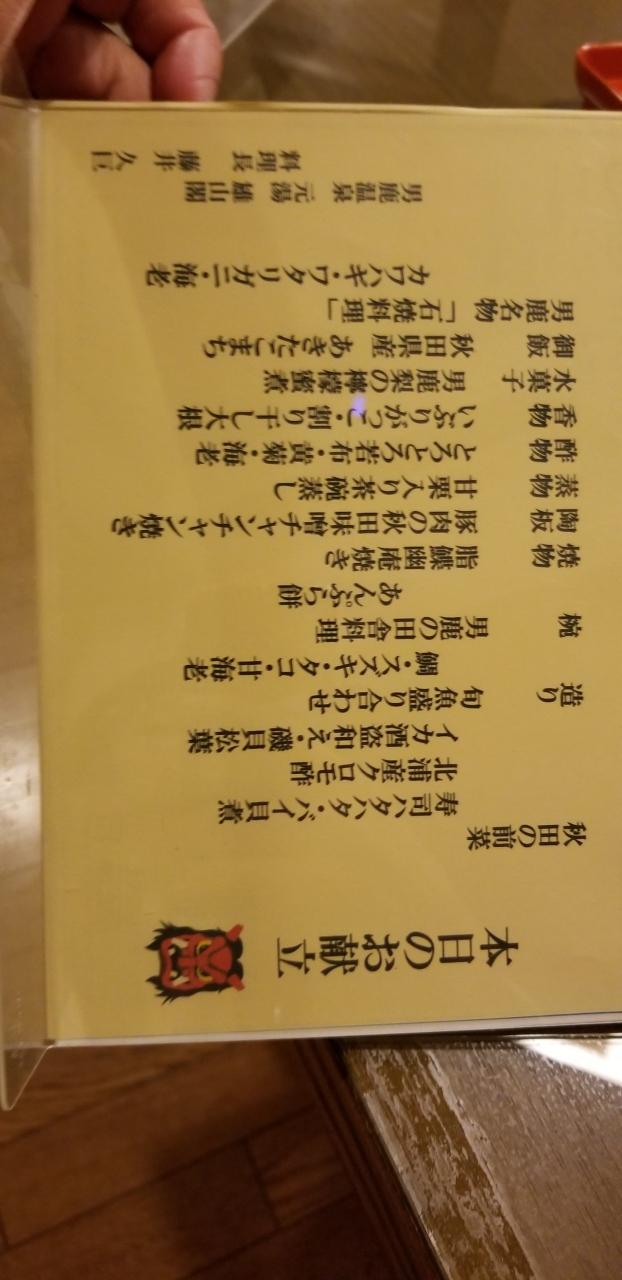 本日のお献立
秋田の前菜
寿司ハタハタ・バイ貝煮
北浦産クロモ酢
イカ酒盗和え・磯貝松葉
造り 旬魚盛り合わせ
鯛・スズキ・タコ・甘海老
椀 男鹿の田舎料理
あんぷら餅
焼物 脂鰈幽庵焼き
陶板 豚肉の秋田味噌チャンチャン焼き
蒸物 甘栗入り茶碗蒸し
酢物 とろとろ若布・黄菊・海老
香物 いぶりがっこ・割り干し大根
水菓子 男鹿梨の檸檬蜜煮
御飯 秋田県産 あきたこまち
男鹿名物 「石焼料理」
カワハギ・ワタリガニ・海老
男鹿温泉 元湯 雄山閣
料理長 藤井 久巨